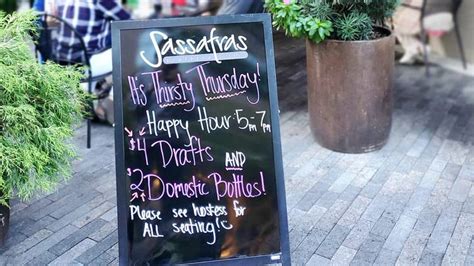 Sassafras
It's Thirsty Thursday!
Happy Hour: 5pm 7pm
$4 Drafts AND
$2 Domestic Bottles!
Please see hostess for
ALL seating!